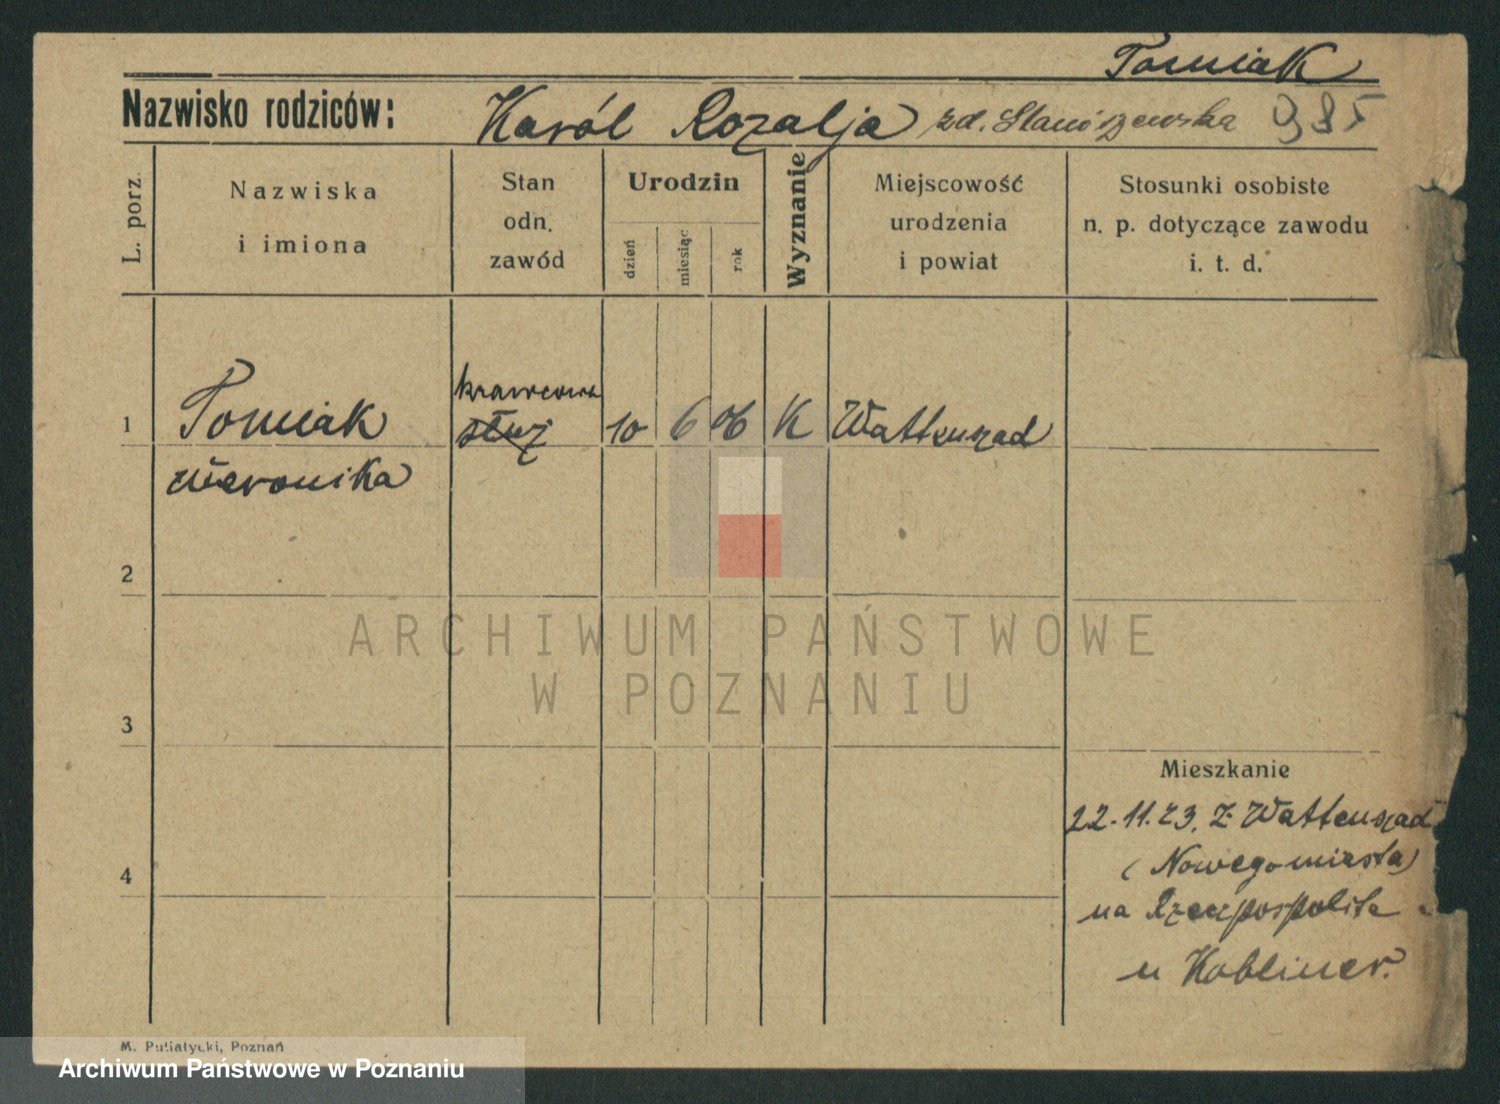 Tomiak
Nazwisko rodziców: Karól Rozalja zd. Staniszewska 985
L. porz.
Nazwiska
i imiona
Stan
odn.
zawód
Urodzin
dzień
miesiąc
rok
Wyznanie
Miejscowość
urodzenia
i powiat
Stosunki osobiste
n. p. dotyczące zawodu
i. t. d.
krawcowa
1 Tomiak służ 10 6 06 K Wattenszad
Weronika
2
ARCHIWUM PAŃSTWOWE
W POZNANIU
3
Mieszkanie
22.11.23. z Wattenszad
(Nowegomiasta)
4
na Rzeczpospolita
u
M. Putiatycki, Poznań
Archiwum Państwowe w Poznaniu